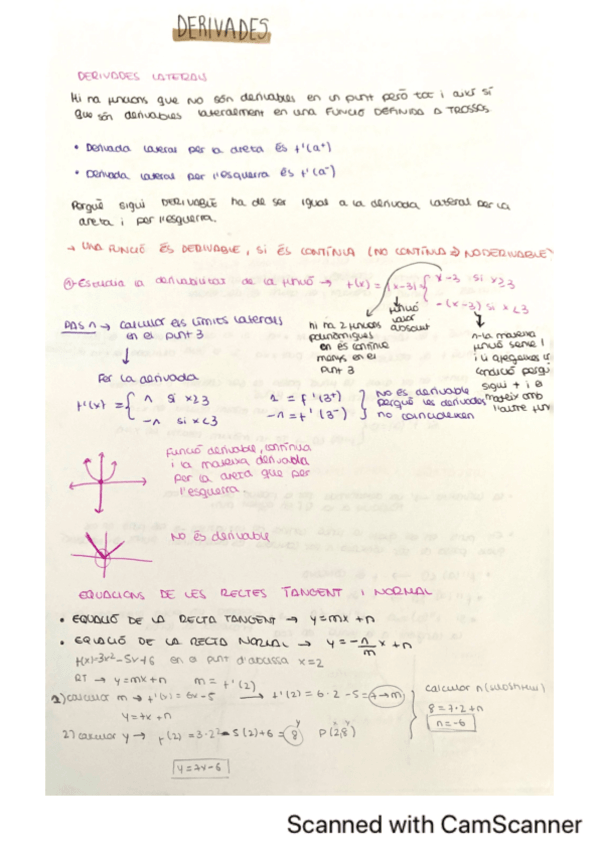 DERIVADES
DERIVADES LATERALS
Hi ha funcions que no són derivables en un punt però tot i així sí
que són derivables lateralment en una FUNCIÓ DEFINIDA A TROSSOS
• Derivada lateral per la dreta és f'(a⁺)
• Derivada lateral per l'esquerra és f'(a⁻)
Perquè sigui DERIVABLE ha de ser igual a la derivada lateral per la
dreta i per l'esquerra.
→ UNA FUNCIÓ ÉS DERIVABLE, SI ÉS CONTÍNUA (NO CONTÍNUA ⇒ NO DERIVABLE)
① Estudia la derivabilitat de la funció → f(x) = |x-3| = { x-3 si x≥3
-(x-3) si x<3
funció valor absolut
hi ha 2 funcions
polinòmiques
en és contínue
menys en el
punt 3
n-la mateixa
funció sense |
i li afegeixes
condició perquè
sigui + i el
mateix amb
l'altre
PAS 1 → calcular els límits laterals
en el punt 3
Fer la derivada
f'(x) = { 1 si x≥3
-1 si x<3
1 = f'(3⁺)
-1 = f'(3⁻)
No és derivable
perquè les derivades
no coincideixen
Funció derivable, contínua
i la mateixa derivada
per la dreta que per
l'esquerra
No és derivable
EQUACIONS DE LES RECTES TANGENT I NORMAL
• EQUACIÓ DE LA RECTA TANGENT → y=mx+n
• EQUACIÓ DE LA RECTA NORMAL → y=-1/m x+n
f(x)=3x²-5x+6 en el punt d'abscissa x=2
RT → y=mx+n m = f'(2)
1) calcular m → f'(x) = 6x-5 → f'(2) = 6·2-5 = 7 → m
y=7x+n
2) calcular y → f(2) = 3·2²-5(2)+6 = 8 P(2,8)
calcular n
8=7·2+n
n=-6
y=7x-6
Scanned with CamScanner